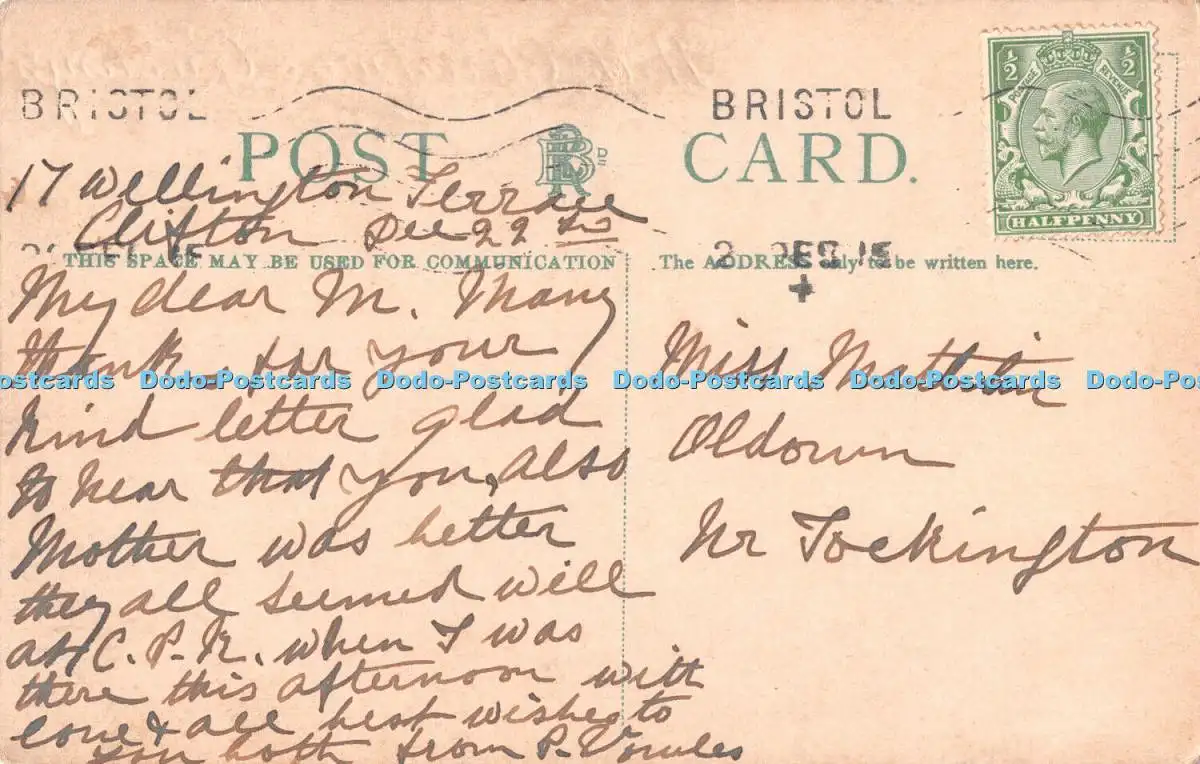 BRISTOL BRISTOL
POST CARD.
½ ½
POSTAGE REVENUE
HALFPENNY
17 Wellington Terrace
Clifton Dec 22
DEC 15
THIS SPACE MAY BE USED FOR COMMUNICATION
The ADDRESS only to be written here.
My dear M. Many
thanks for your
kind letter glad
to hear that you, also
Mother was better
they all seemed well
at C. P. R. when I was
there this afternoon with
love & all best wishes to
you both from P. Vowles
Miss
Oldown
Nr Tockington
Dodo-Postcards Dodo-Postcards Dodo-Postcards Dodo-Postcards Dodo-Postcards